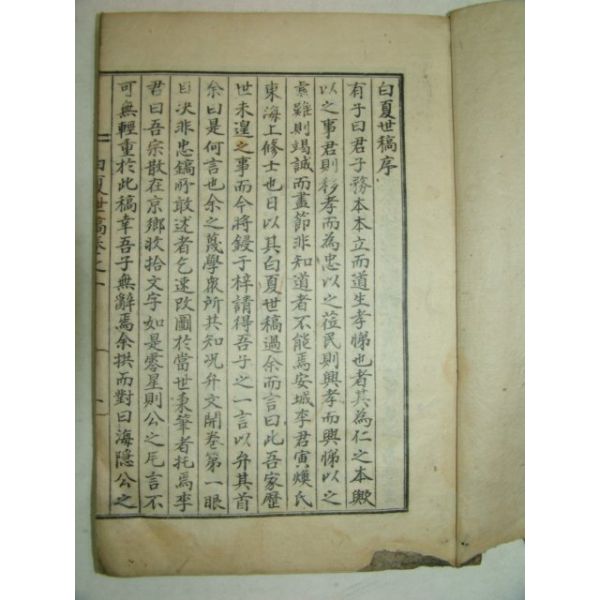 白夏世稿序
有子曰君子務本本立而道生孝悌也者其為仁之本歟
以之事君則移孝而為忠以之莅民則興孝而興悌以之
當難則竭誠而盡節非知道者不能焉安城李君寅煥氏
東海上修士也日以其白夏世稿過余而言曰此吾家歷
世未遑之事而今將鋟于梓請得吾子之一言以弁其首
余曰是何言也余之蔑學衆所共知况弁文開卷第一眼
目决非忠鎬所敢述者乞速改圖於當世秉筆者托焉李
君曰吾宗散在京鄉收拾文字如是零星則公之巵言不
可無輕重於此稿幸吾子無辭焉余拱而對曰海隱公之
白夏世稿卷之一
一